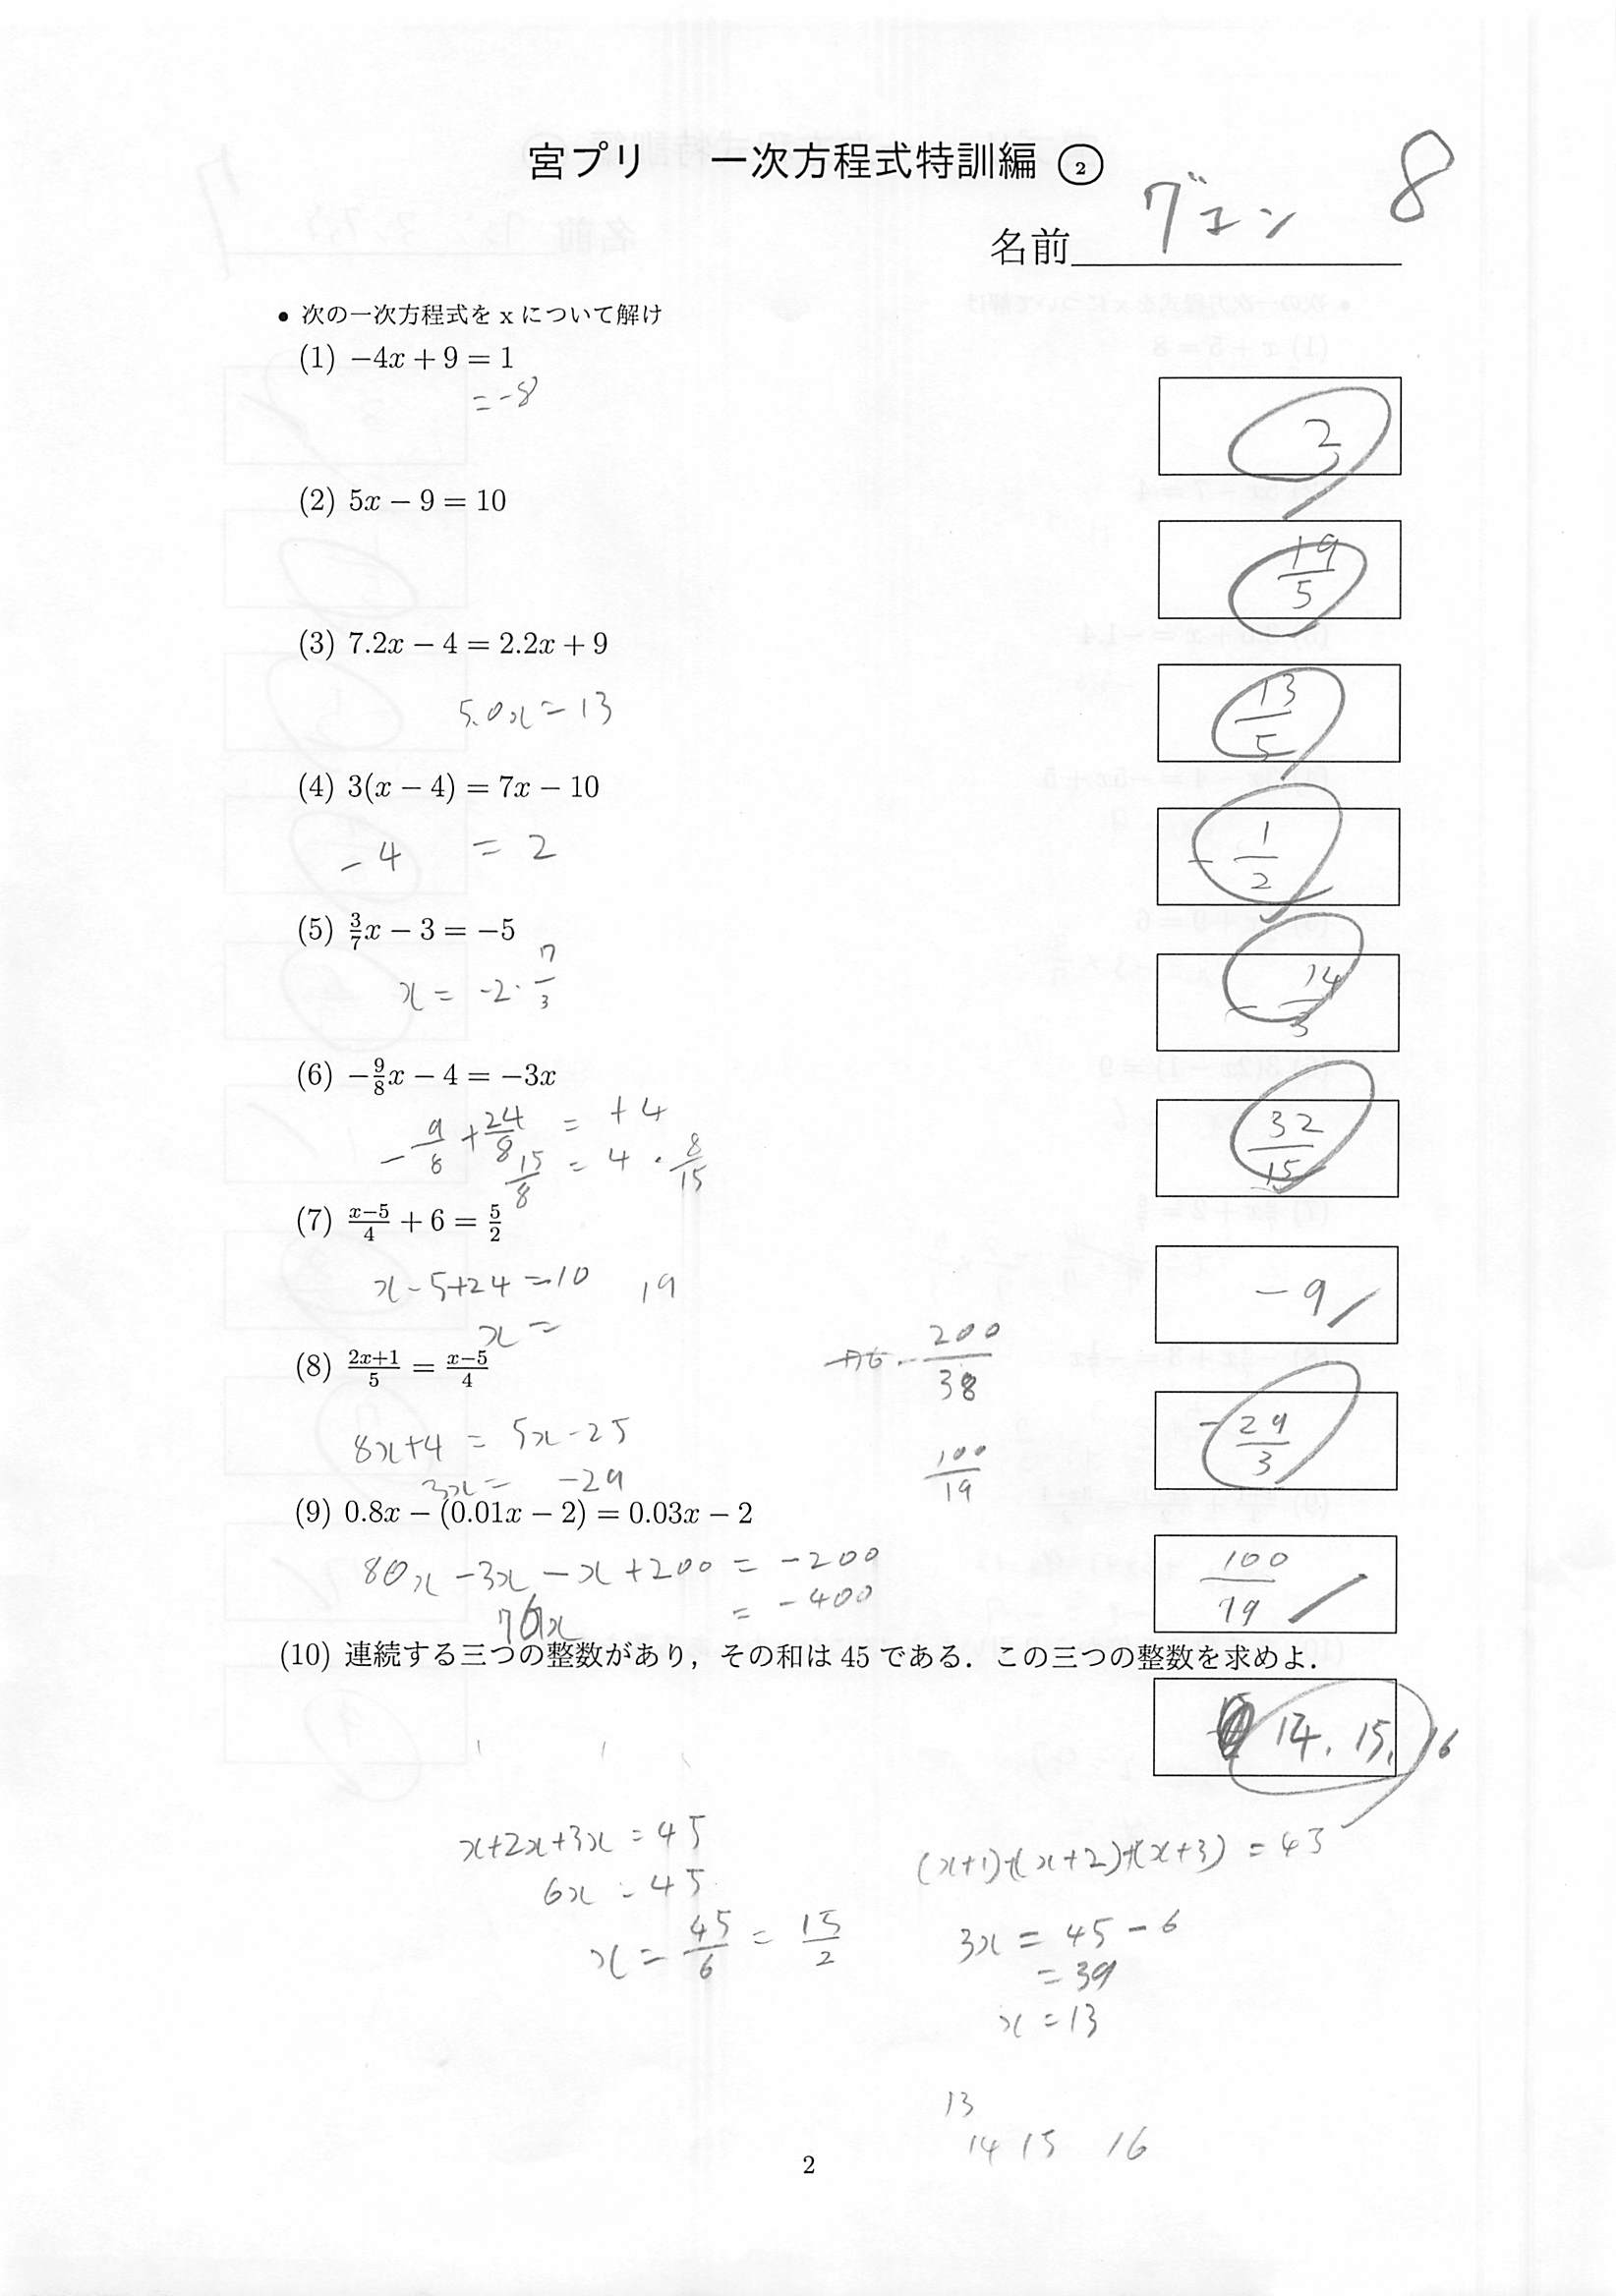 宮プリ 一次方程式特訓編 ②
8
名前 グエン
• 次の一次方程式を x について解け
(1) −4x + 9 = 1
= -8
2
(2) 5x − 9 = 10
19/5
(3) 7.2x − 4 = 2.2x + 9
5.0x = 13
13/5
(4) 3(x − 4) = 7x − 10
-4 = 2
- 1/2
(5) 3/7 x − 3 = −5
x = -2 · 7/3
- 14/3
(6) −9/8 x − 4 = −3x
- 9/8 + 24/8 = +4
15/8 = 4 · 8/15
32/15
(7) (x−5)/4 + 6 = 5/2
x - 5 + 24 = 10 19
x =
-9
(8) (2x+1)/5 = (x−5)/4
8x+4 = 5x-25
3x = -29
- 29/3
200/38
100/19
(9) 0.8x − (0.01x − 2) = 0.03x − 2
80x - 3x - x + 200 = -200
76x = -400
100/19
(10) 連続する三つの整数があり，その和は 45 である．この三つの整数を求めよ．
14, 15, 16
x+2x+3x = 45
6x = 45
x = 45/6 = 15/2
(x+1)+(x+2)+(x+3) = 43
3x = 45 - 6
= 39
x = 13
13
14 15 16
2